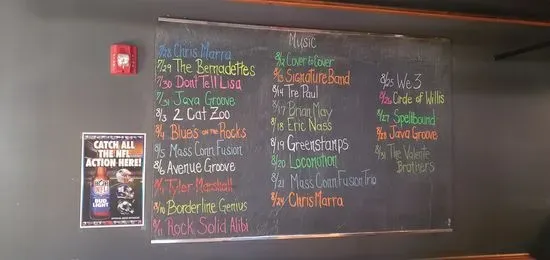 Music
7/28 Chris Marra
7/29 The Bernadettes
7/30 Dont Tell Lisa
7/31 Java Groove
8/3 2 Cat Zoo
8/4 Blues on the Rocks
8/5 Mass Conn Fusion
8/6 Avenue Groove
Tyler Marshall
8/10 Borderline Genius
8/11 Rock Solid Alibi
8/12 Cover to Cover
8/13 Signature Band
8/14 Tre Paul
8/17 Brian May
8/18 Eric Nass
8/19 Greenstamps
8/20 Locomotion
8/21 Mass Conn Fusion Trio
8/24 Chris Marra
8/25 We 3
8/26 Circle of Willis
8/27 Spellbound
8/28 Java Groove
8/31 The Valente
Brothers
CATCH ALL
THE NFL
ACTION HERE!
NFL
BUD
LIGHT